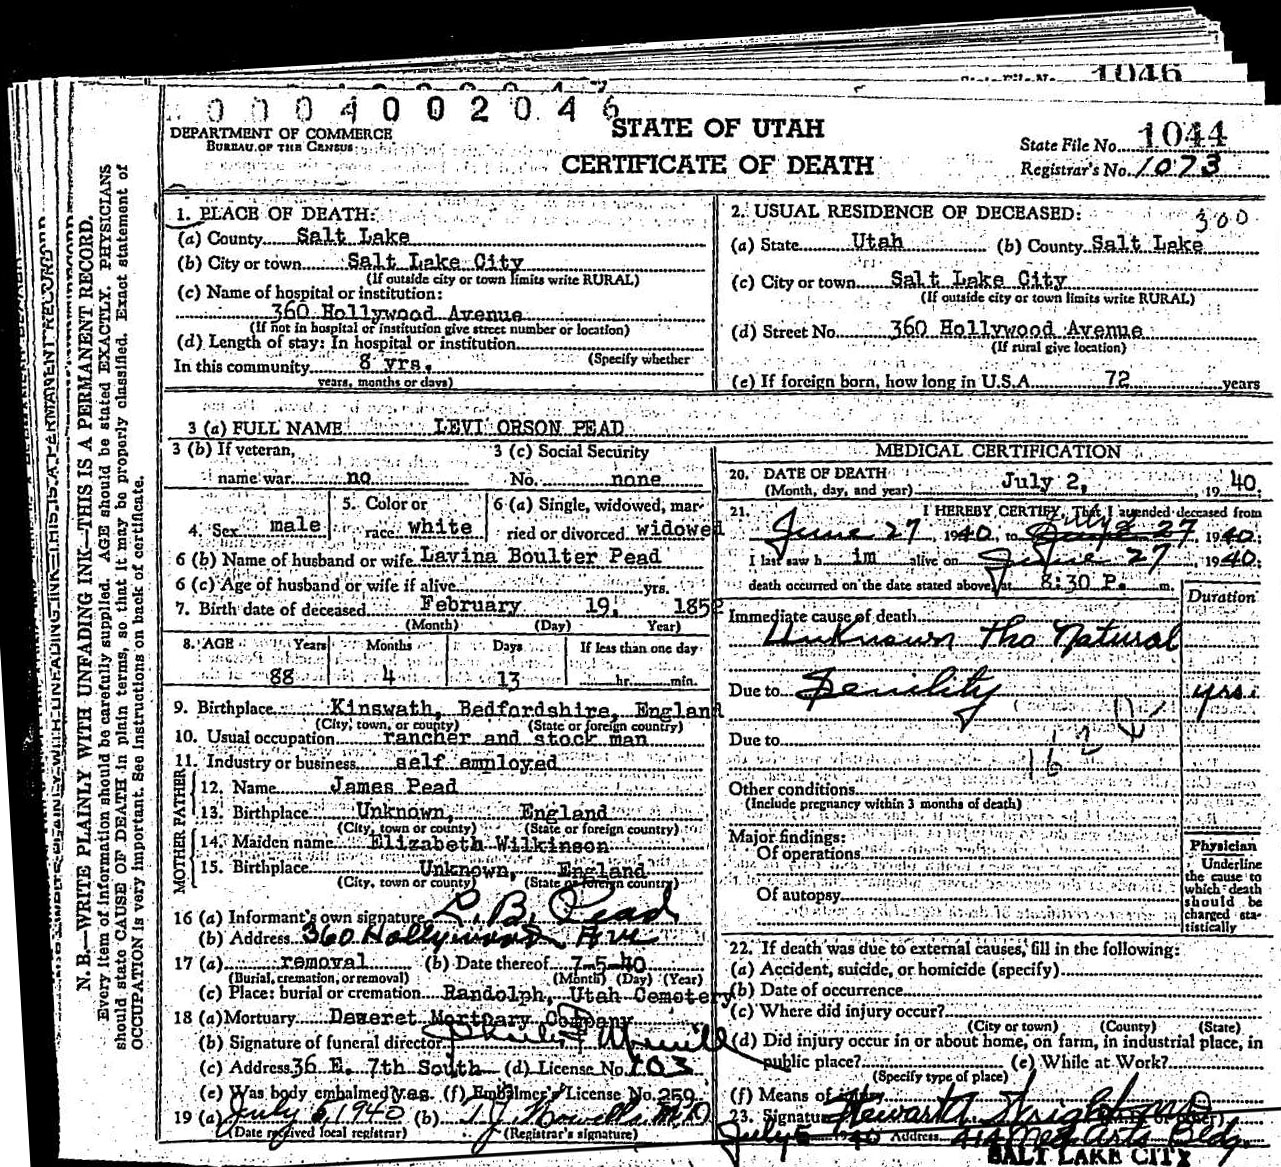 1046
0004002046
DEPARTMENT OF COMMERCE
BUREAU OF THE CENSUS
STATE OF UTAH
CERTIFICATE OF DEATH
State File No. 1044
Registrar's No. 1073
N. B.—WRITE PLAINLY WITH UNFADING INK—THIS IS A PERMANENT RECORD.
Every item of information should be carefully supplied. AGE should be stated EXACTLY. PHYSICIANS
should state CAUSE OF DEATH in plain terms, so that it may be properly classified. Exact statement of
OCCUPATION is very important. See instructions on back of certificate.
1. PLACE OF DEATH:
(a) County Salt Lake
(b) City or town Salt Lake City
(If outside city or town limits write RURAL)
(c) Name of hospital or institution:
360 Hollywood Avenue
(If not in hospital or institution give street number or location)
(d) Length of stay: In hospital or institution
(Specify whether
In this community 8 yrs.
years, months or days)
2. USUAL RESIDENCE OF DECEASED: 300
(a) State Utah (b) County Salt Lake
(c) City or town Salt Lake City
(If outside city or town limits write RURAL)
(d) Street No. 360 Hollywood Avenue
(If rural give location)
(e) If foreign born, how long in U.S.A. 72 years
3 (a) FULL NAME LEVI ORSON PEAD
3 (b) If veteran, 3 (c) Social Security
name war no No. none
4. Sex male 5. Color or race white 6 (a) Single, widowed, married or divorced widowed
6 (b) Name of husband or wife Lavina Boulter Pead
6 (c) Age of husband or wife if alive yrs.
7. Birth date of deceased February 19, 1852
(Month) (Day) Year)
8. AGE Years Months Days If less than one day
88 4 13 hr. min.
9. Birthplace Kinswath, Bedfordshire, England
(City, town, or county) (State or foreign country)
10. Usual occupation rancher and stock man
11. Industry or business self employed
FATHER
12. Name James Pead
13. Birthplace Unknown, England
(City, town or county) (State or foreign country)
MOTHER
14. Maiden name Elizabeth Wilkinson
15. Birthplace Unknown, England
(City, town or county) (State or foreign country)
16 (a) Informant's own signature L. B. Pead
(b) Address 360 Hollywood Ave
17 (a) removal (b) Date thereof 7-5-40
(Burial, cremation, or removal) (Month) (Day) (Year)
(c) Place: burial or cremation Randolph, Utah Cemetery
18 (a) Mortuary Deseret Mortuary Company
(b) Signature of funeral director
(c) Address 36 E. 7th South (d) License No. 103
(e) Was body embalmed yes (f) Embalmer's License No. 259
19 (a) July 6, 1940 (b)
(Date received local registrar) (Registrar's signature)
MEDICAL CERTIFICATION
20. DATE OF DEATH
(Month, day, and year) July 2, 1940;
21. I HEREBY CERTIFY, That I attended deceased from
June 27 1940, to 27, 1940;
I last saw h im alive on June 27 1940;
death occurred on the date stated above, at 8:30 P. m.
Duration
Immediate cause of death
Unknown tho Natural
Due to Senility yrs.
Due to
162
Other conditions
(Include pregnancy within 3 months of death)
Major findings:
Of operations
Of autopsy
Physician
Underline
the cause to
which death
should be
charged sta-
tistically
22. If death was due to external causes, fill in the following:
(a) Accident, suicide, or homicide (specify)
(b) Date of occurrence
(c) Where did injury occur?
(City or town) (County) (State)
(d) Did injury occur in or about home, on farm, in industrial place, in
public place? (e) While at Work?
(Specify type of place)
(f) Means of injury
23. Signature
July 5 40 Address 414 Med Arts Bldg.
SALT LAKE CITY